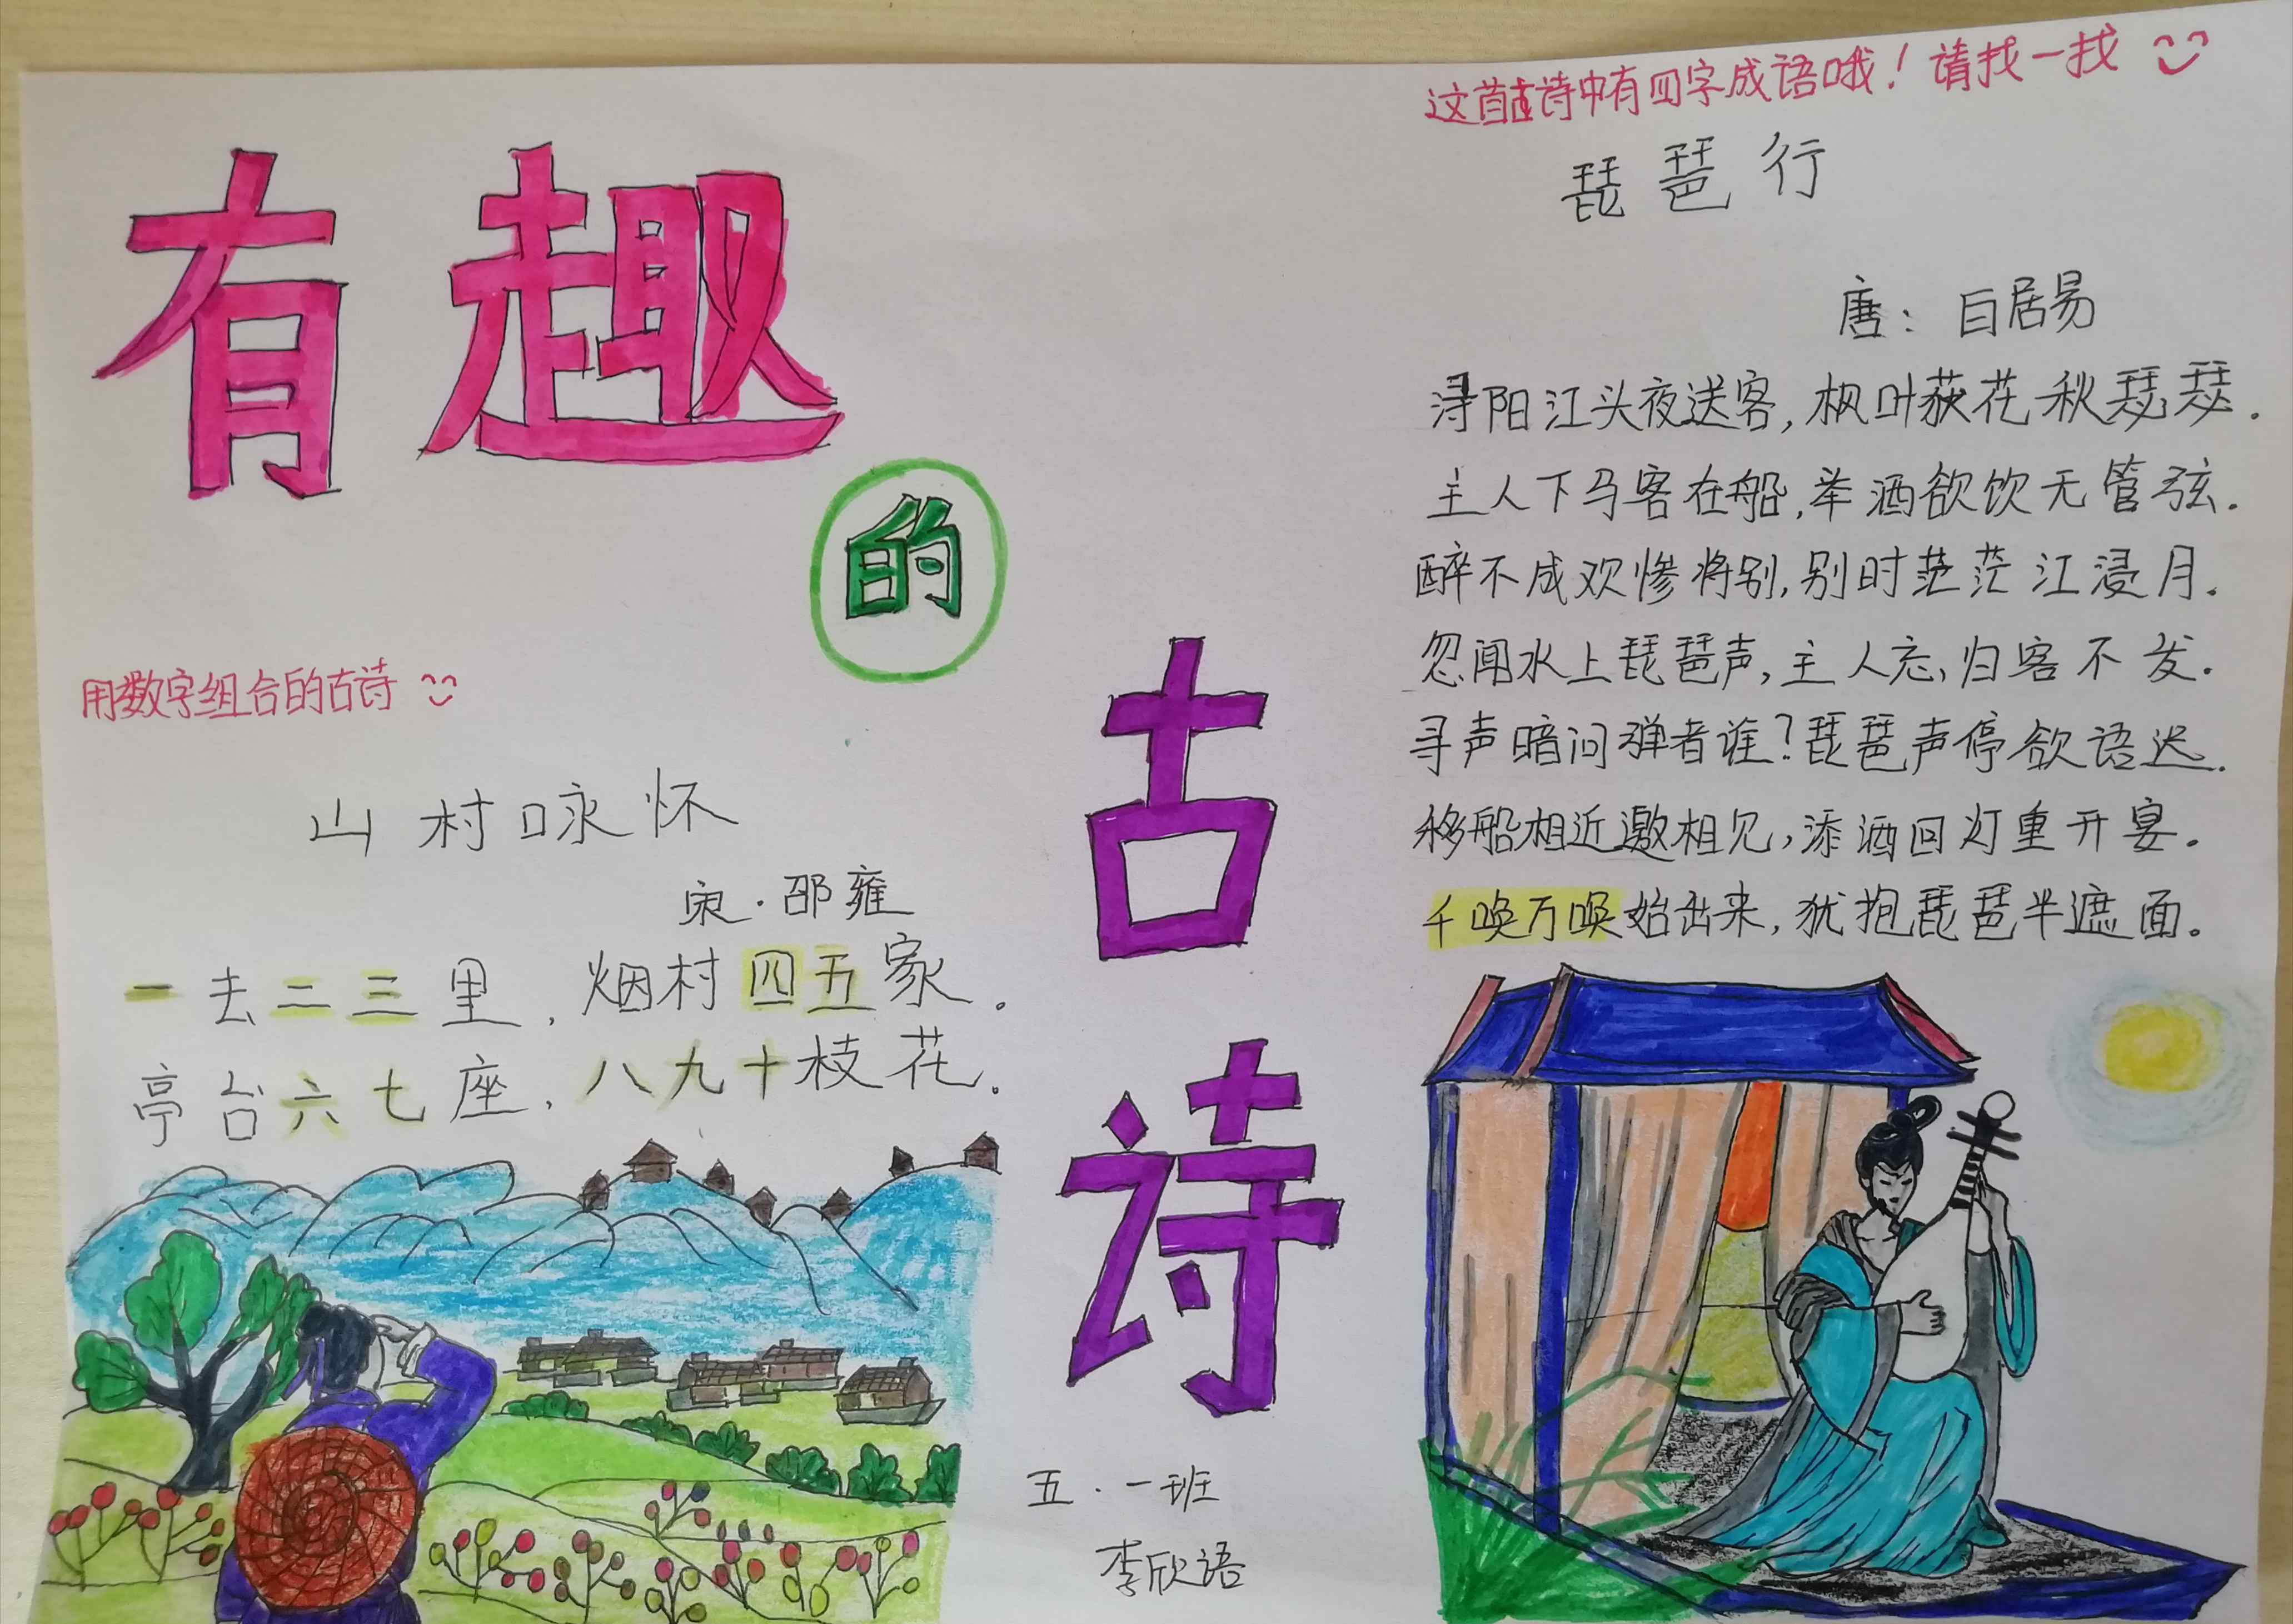 有趣
的
古诗
用数字组合的古诗
山村咏怀
宋·邵雍
一去二三里，烟村四五家。
亭台六七座，八九十枝花。
五·一班
李欣语
这首古诗中有四字成语哦！请找一找
琵琶行
唐：白居易
浔阳江头夜送客，枫叶荻花秋瑟瑟。
主人下马客在船，举酒欲饮无管弦。
醉不成欢惨将别，别时茫茫江浸月。
忽闻水上琵琶声，主人忘归客不发。
寻声暗问弹者谁？琵琶声停欲语迟。
移船相近邀相见，添酒回灯重开宴。
千唤万唤始出来，犹抱琵琶半遮面。